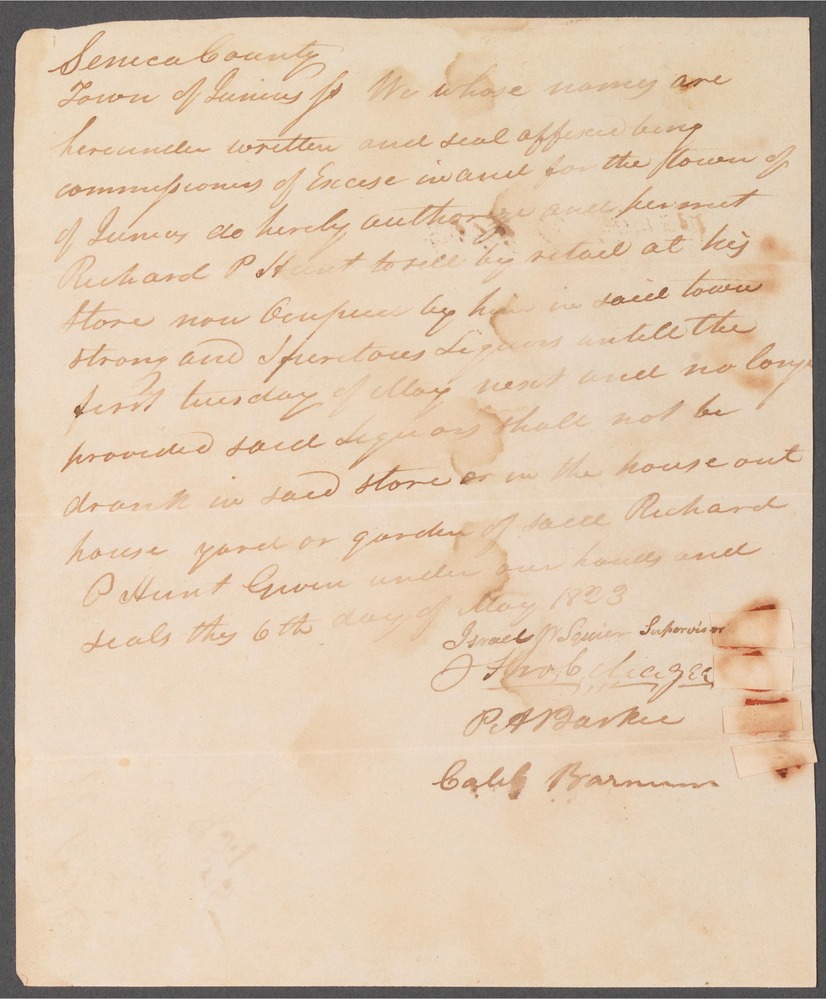 Seneca County
Town of Junius ss We whose names are
hereunder written and seal affixed being
commissioners of Excise in and for the town of
of Junius do hereby authorize and permit
Richard P Hunt to sell by retail at his
store now Occupied by him in said town
strong and Spiritous Liquors untill the
first tuesday of May next and no longer
provided said Liquors shall not be
drank in said store or in the house out
house yard or garden of said Richard
P Hunt Given under our hands and
seals this 6th day of May 1823
Israel W Squier Supervisor
P A Barker
Caleb Barnum